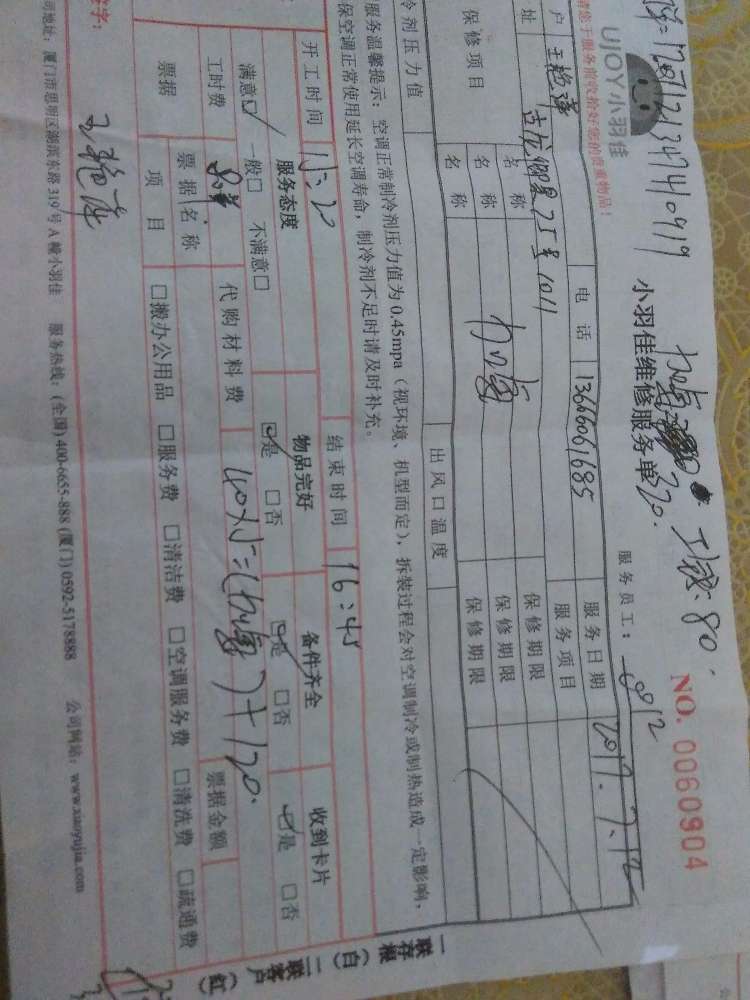 170512134740919
加氟 320. 工钱:80.
UJOY小羽佳
小羽佳维修服务单
NO. 0060904
请您于服务前收拾好您的贵重物品!
服务员工:6012
户 王艳萍 电话 13666061685 服务日期 2017.7.12
址 古龙御景25号1011 服务项目
保修项目 名称 保修期限
名称 加氟 保修期限
名称 保修期限
冷剂压力值 出风口温度
服务温馨提示:空调正常制冷剂压力值为0.45mpa(视环境、机型而定),拆装过程会对空调制冷或制热造成一定影响,
保空调正常使用延长空调寿命,制冷剂不足时请及时补充。
开工时间 15:20 结束时间 16:45
服务态度 物品完好 备件齐全 收到卡片
满意☑ 一般□ 不满意□ ☑是 □否 ☑是 □否 ☑是 □否
工时费 代购材料费 40×5=(加氟)+120.
票据 票据名称 票据金额
项目 □搬办公用品 □服务费 □清洁费 □空调服务费 □清洗费 □疏通费
签字: 王艳萍
司地址:厦门市思明区湖滨东路319号A幢小羽佳 服务热线:(全国)400-6655-888 (厦门) 0592-5178888 公司网站:www.xiaoyujia.com
一联存根(白) 二联客户(红)